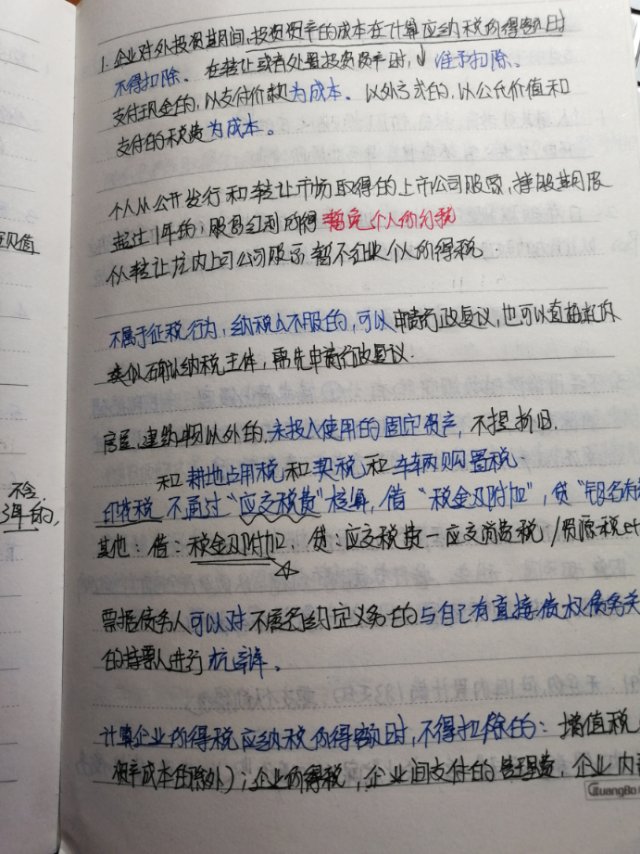 1. 企业对外投资期间,投资资产的成本在计算应纳税所得额时
不得扣除。在转让或者处置投资资产时,↓准予扣除。
支付现金的,以支付价款为成本。以外方式的,以公允价值和
支付的税费为成本。
个人从公开发行和转让市场取得的上市公司股票,持股期限
超过1年的,股息红利所得暂免个人所得税
个人转让境内上市公司股票暂不征收个人所得税
不属于征税行为,纳税人不服的,可以申请行政复议,也可以直接起诉
类似确认纳税主体,需先申请行政复议.
房屋、建筑物以外的,未投入使用的固定资产,不提折旧.
和耕地占用税和契税和车辆购置税
印花税不通过“应交税费”核算,借“税金及附加”,贷“银行存
其他:借:税金及附加,贷:应交税费-应交消费税/资源税
不含
3年的,
票据债务人可以对不履行约定义务的与自己有直接债权债务关
的持票人进行抗辩。
计算企业所得税应纳税所得额时,不得扣除的:增值税
资产成本的除外);企业所得税,企业间支付的管理费,企业内
GuangBo